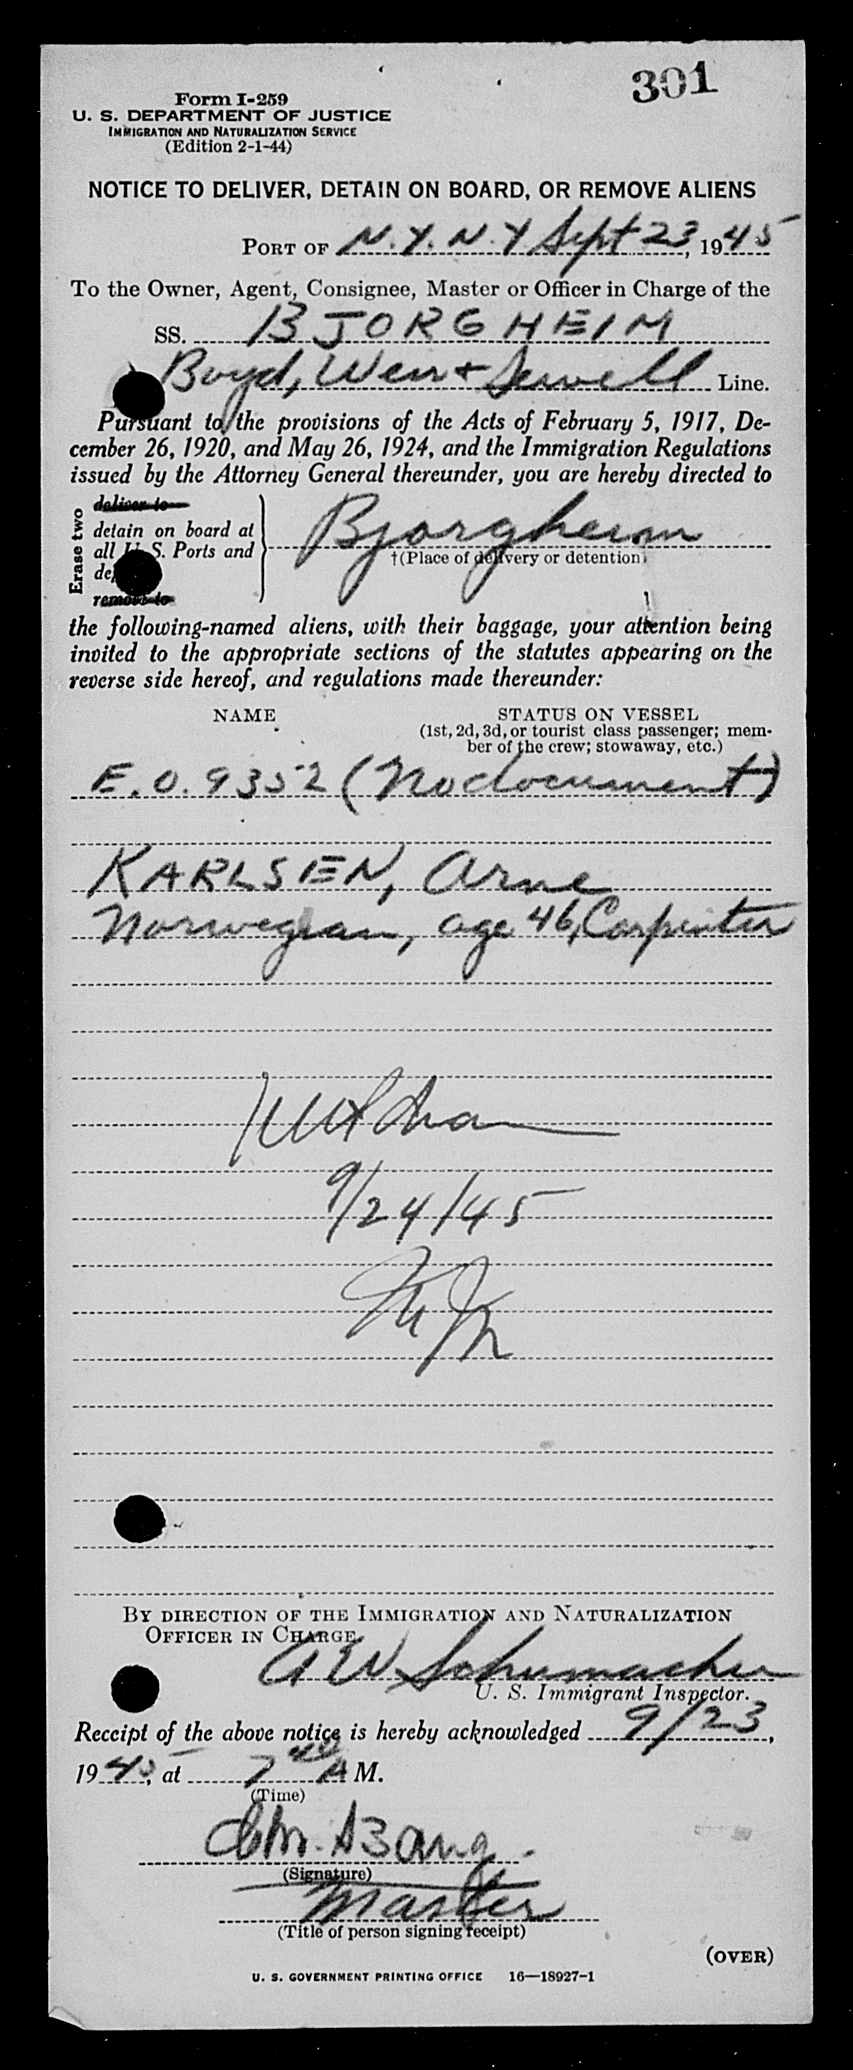 301
Form I-259
U. S. DEPARTMENT OF JUSTICE
IMMIGRATION AND NATURALIZATION SERVICE
(Edition 2-1-44)
NOTICE TO DELIVER, DETAIN ON BOARD, OR REMOVE ALIENS
PORT OF N.Y. N.Y Sept 23, 1945
To the Owner, Agent, Consignee, Master or Officer in Charge of the
SS. BJORGHEIM
Boyd, Weir + Sewell Line.
Pursuant to the provisions of the Acts of February 5, 1917, De-
cember 26, 1920, and May 26, 1924, and the Immigration Regulations
issued by the Attorney General thereunder, you are hereby directed to
Erase two
deliver to
detain on board at
all U. S. Ports and
remove to
Bjorgheim
†(Place of delivery or detention)
the following-named aliens, with their baggage, your attention being
invited to the appropriate sections of the statutes appearing on the
reverse side hereof, and regulations made thereunder:
NAME STATUS ON VESSEL
(1st, 2d, 3d, or tourist class passenger; mem-
ber of the crew; stowaway, etc.)
E.O. 9352 (No document)
KARLSEN, Arne
Norwegian, age 46, Carpenter
9/24/45
BY DIRECTION OF THE IMMIGRATION AND NATURALIZATION
OFFICER IN CHARGE.
Schumacher
U. S. Immigrant Inspector.
Receipt of the above notice is hereby acknowledged 9/23,
1945, at 7 40 A M.
(Time)
Chr. Bang.
(Signature)
Master
(Title of person signing receipt)
(OVER)
U. S. GOVERNMENT PRINTING OFFICE 16—18927-1